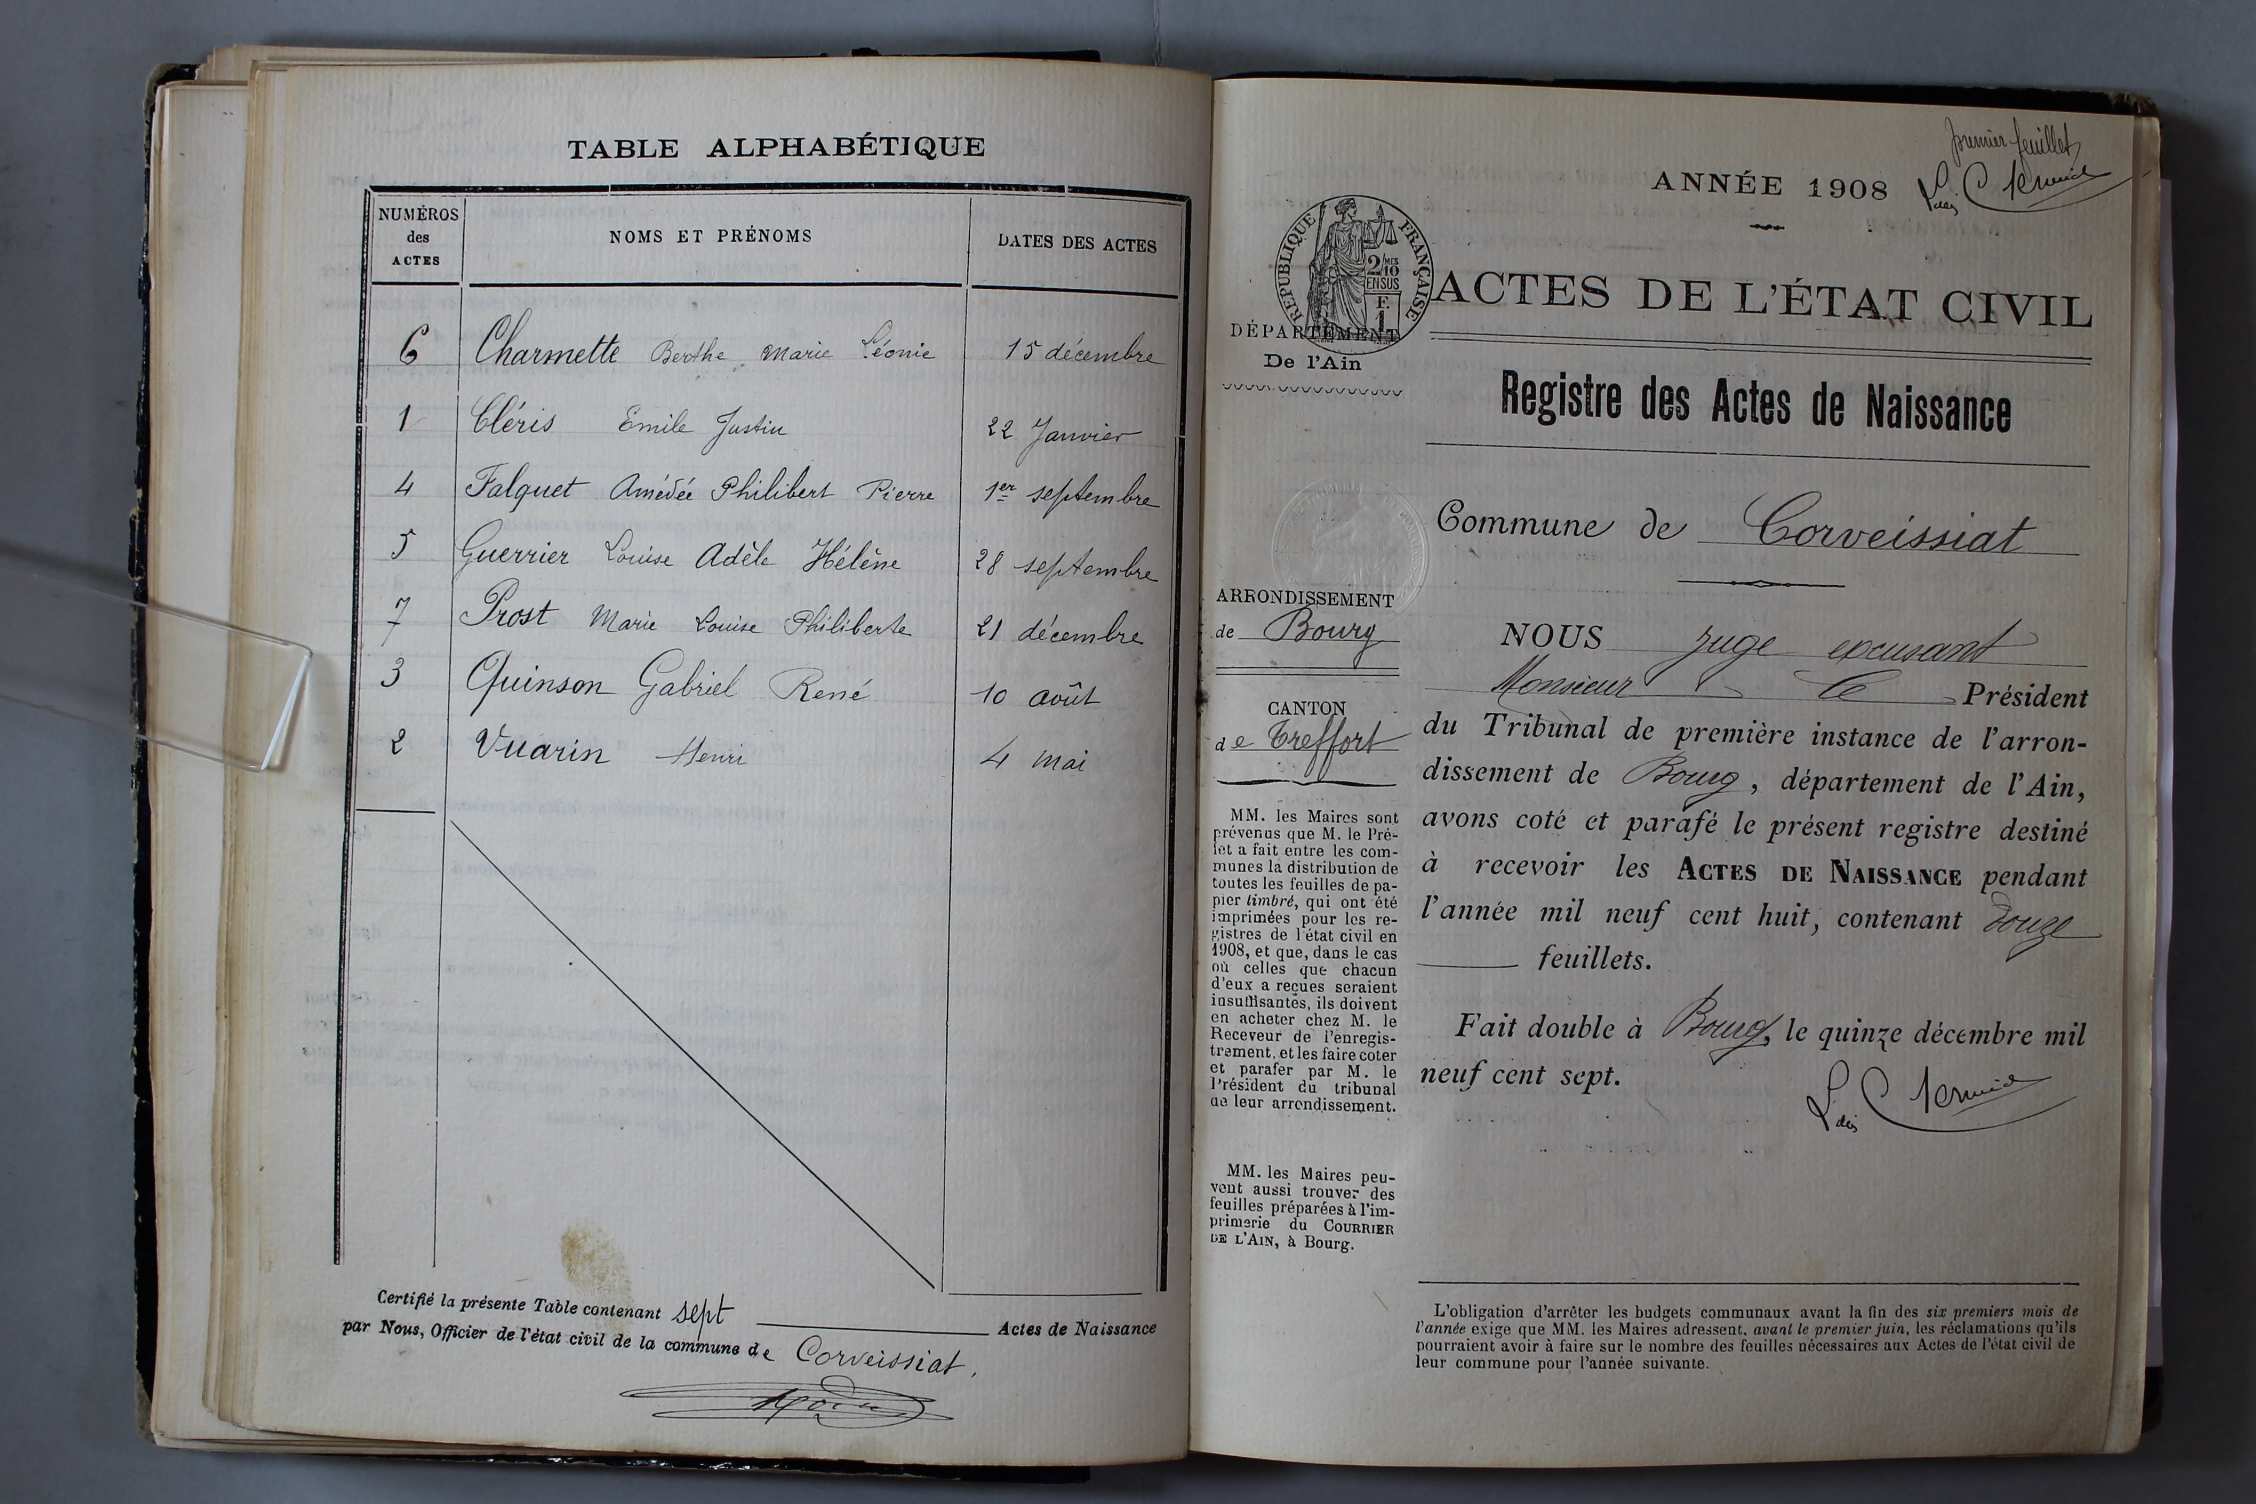 TABLE ALPHABÉTIQUE
NUMÉROS des ACTES
NOMS ET PRÉNOMS
DATES DES ACTES
6 Charmette Berthe Marie Léonie 15 décembre
1 Cléris Emile Justin 22 Janvier
4 Falquet Amédée Philibert Pierre 1er septembre
5 Guerrier Louise Adèle Hélène 28 septembre
7 Prost Marie Louise Philiberte 21 décembre
3 Quinson Gabriel René 10 août
2 Vuarin Henri 4 mai
Certifié la présente Table contenant sept Actes de Naissance
par Nous, Officier de l'état civil de la commune de Corveissiat.
premier feuillet
ANNÉE 1908
RÉPUBLIQUE FRANÇAISE
2/10 MES
EN SUS
F. 1
ACTES DE L'ÉTAT CIVIL
DÉPARTEMENT
De l'Ain
Registre des Actes de Naissance
Commune de Corveissiat
ARRONDISSEMENT
de Bourg
CANTON
de Treffort
MM. les Maires sont
prévenus que M. le Pré-
fet a fait entre les com-
munes la distribution de
toutes les feuilles de pa-
pier timbré, qui ont été
imprimées pour les re-
gistres de l'état civil en
1908, et que, dans le cas
où celles que chacun
d'eux a reçues seraient
insuffisantes, ils doivent
en acheter chez M. le
Receveur de l'enregis-
trement, et les faire coter
et parafer par M. le
Président du tribunal
de leur arrondissement.
MM. les Maires peu-
vent aussi trouver des
feuilles préparées à l'im-
primerie du COURRIER
DE L'AIN, à Bourg.
NOUS juge excusant
Monsieur le Président
du Tribunal de première instance de l'arron-
dissement de Bourg, département de l'Ain,
avons coté et parafé le présent registre destiné
à recevoir les ACTES DE NAISSANCE pendant
l'année mil neuf cent huit, contenant douze
feuillets.
Fait double à Bourg, le quinze décembre mil
neuf cent sept.
L'obligation d'arrêter les budgets communaux avant la fin des six premiers mois de
l'année exige que MM. les Maires adressent, avant le premier juin, les réclamations qu'ils
pourraient avoir à faire sur le nombre des feuilles nécessaires aux Actes de l'état civil de
leur commune pour l'année suivante.